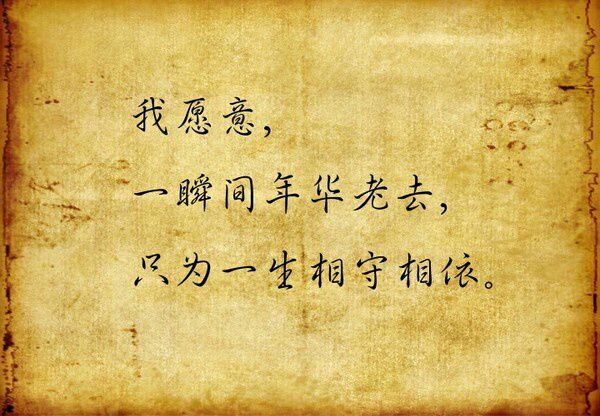 我愿意，
一瞬间年华老去，
只为一生相守相依。